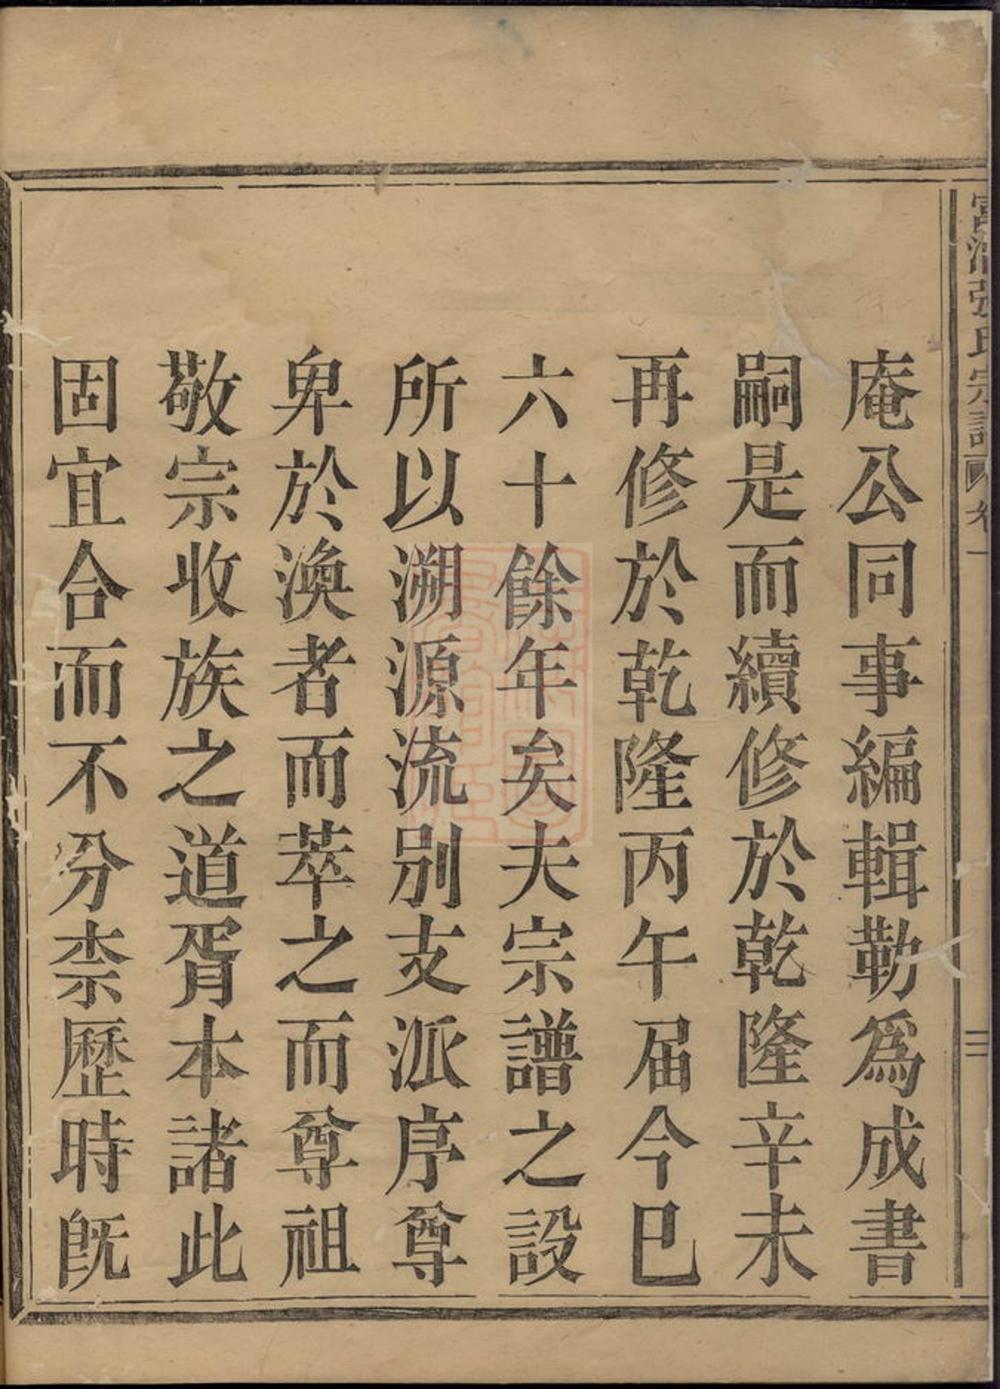 張氏宗譜 卷一
三
庵公同事編輯勒爲成書
嗣是而續修於乾隆辛未
再修於乾隆丙午届今巳
六十餘年矣夫宗譜之設
所以溯源流别支派序尊
卑於渙者而萃之而尊祖
敬宗收族之道胥本諸此
固宜合而不分柰歷時旣